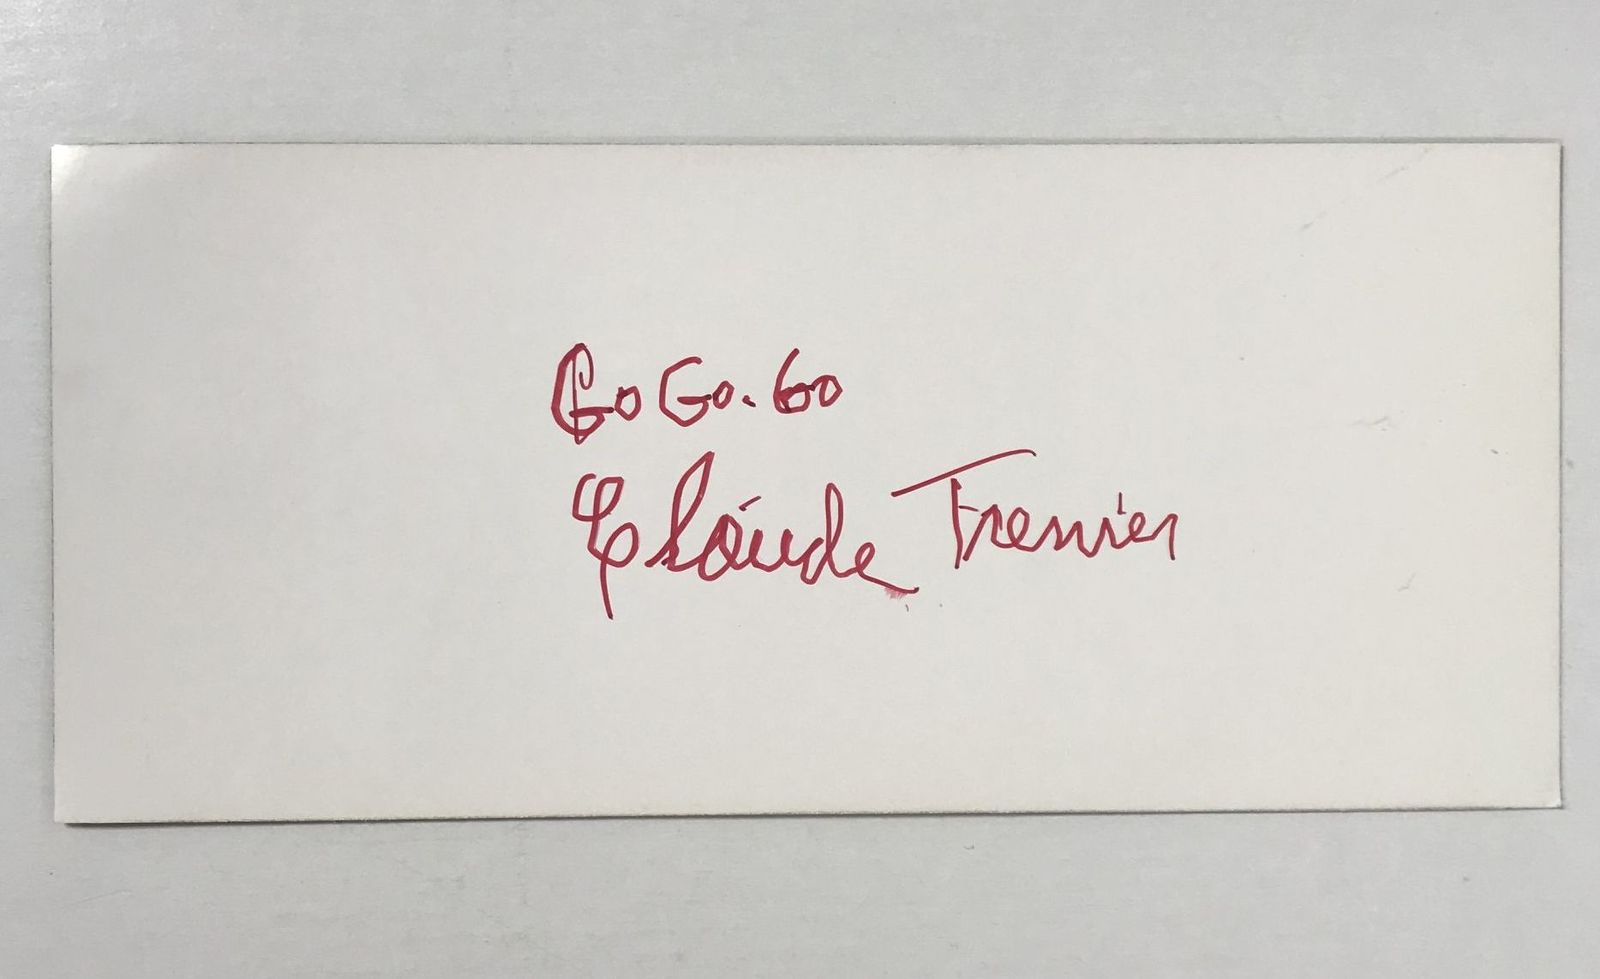 Go Go. Go
Claude Trenier